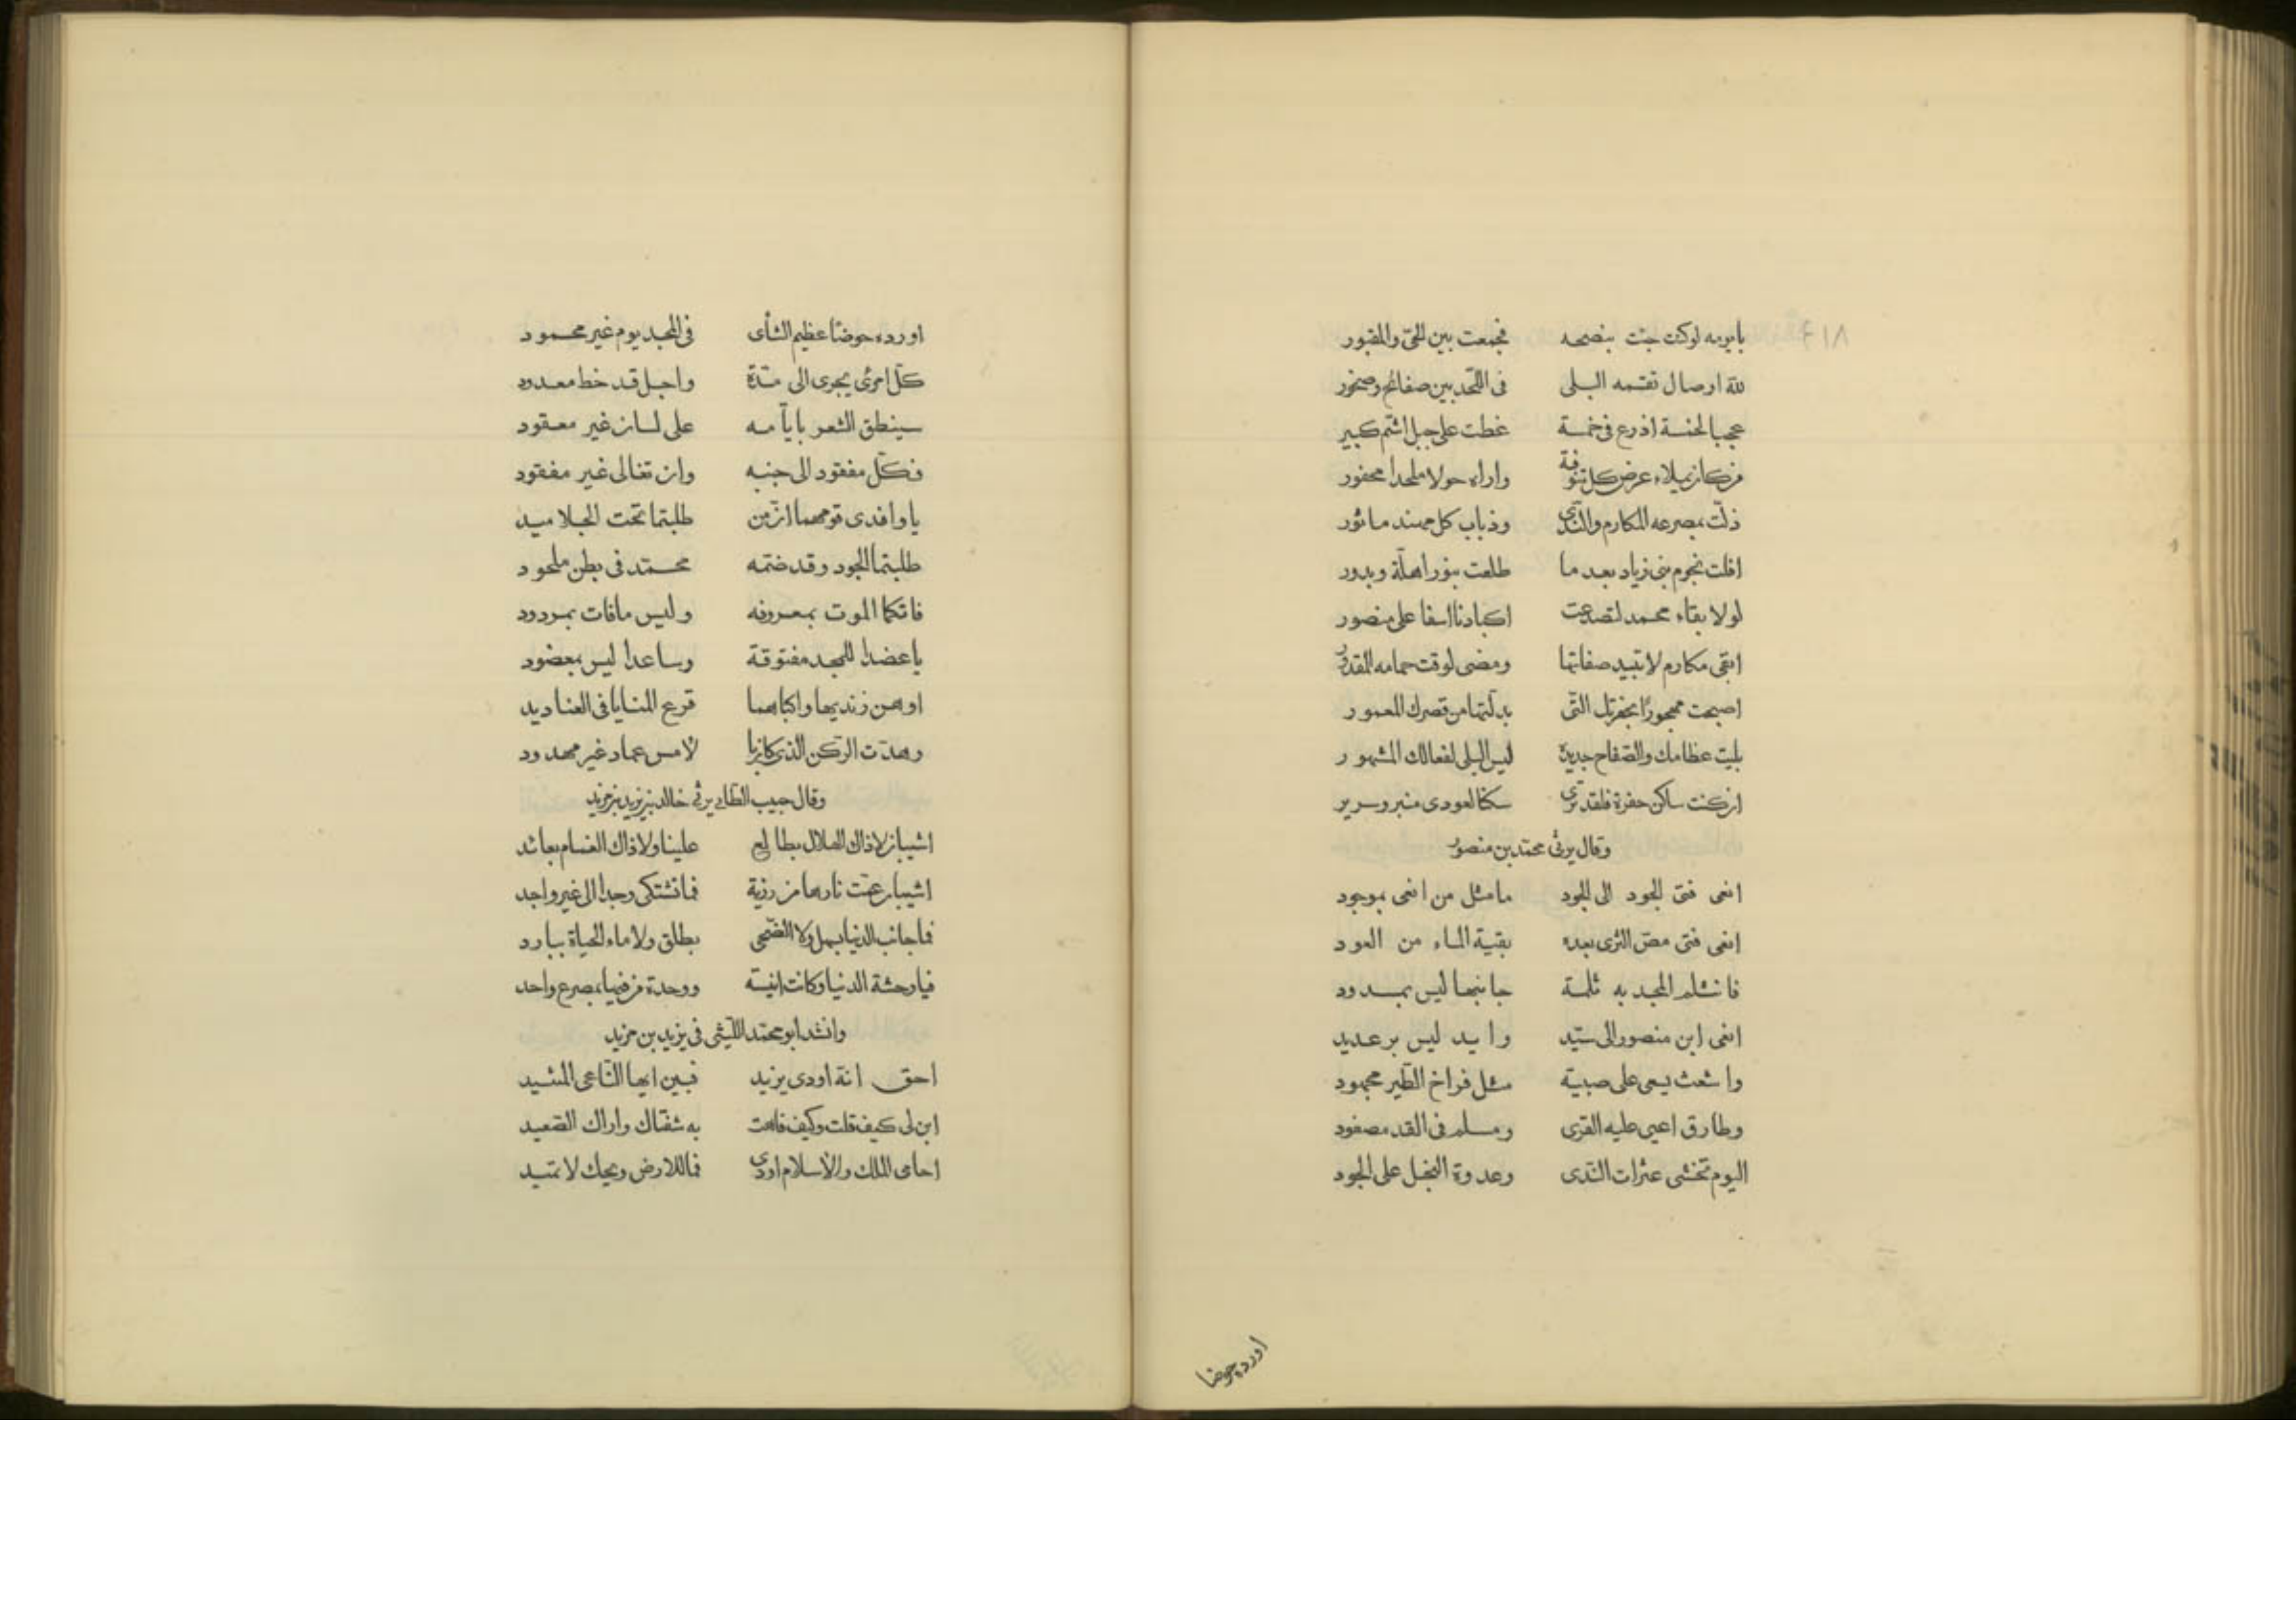 يا يومه لو كنت جئت بنصحه فجمعت بين الحيّ والمقبور
للّه اوصال تقسمه البلى فى اللّحد بين صفائح وصخور
عجبا لخمسة اذرع فى خمسة غطت على جبل اشّم كبير
من كان يملاء عرض كل تنوفة واراه حولا ملحدا محفور
ذلّت بمصرعه المكارم والنّدى وذباب كل مهند ماثور
افلت نجوم بنى زياد بعد ما طلعت بنور اهلّة وبدور
لولا بقاء محمد لتصدعت اكبادنا اسفا على منصور
ابقى مكارم لا تبيد صفاتها ومضى لوقت حمامه المقدور
اصبحت مهجورًا بحفرتك التّى بدلّتها من قصرك المعمور
بليت عظامك والصّفاح جديدة ليس البلى لفعالك المشهور
ان كنت ساكن حفرة فلقد ترى سكنا لعودى منبر وسرير
وقال يرثى محمّد بن منصور
انعى فتى الجود الى الجود ما مثل من انعى بموجود
انعى فتى مصّ الثرى بعده بقيّة الماء من العود
فانثلم المجد به ثلمة جانبها ليس بمسدود
انعى ابن منصور الى سيّد وايد ليس برعديد
واشعث يسعى على صبية مثل فراخ الطّير مجهود
وطارق اعيى عليه القرى ومسلم فى القد مصفود
اليوم تخشى عثرات النّدى وعدوة البخل على الجود
اورده حوضا
٤١٨
اورده حوضًا عظيم الشأى فى المجد يوم غير محمود
كلّ امرئ يجرى الى مدّة واجل قد خط معدود
سينطق الشعر باياّمه على لسان غير معقود
فكلّ مفقود الى جنبه وان تغالى غير مفقود
يا وافدى قومهما انّ من طلبتما تحت الجلاميد
طلبتما الجود وقد ضمّه محمّد فى بطن ملحود
فاتكما الموت بمعروفه وليس ما فات بمردود
يا عضدا للمجد مفتوقة وساعدا ليس بمعضود
اوهن زنديها واكباهما قرع المنايا فى الصناديد
وهدّت الركن الذى كان بالأمس عماد غير مهدود
وقال حبيب الطّاىيرثى خالد بن يزيد بن مزيد
اشيبان لا ذاك الهلال بطالع علينا ولا ذاك الغمام بعائد
اشيبان عمّت نارها من رزية فما نشتكى وجدا الى غير واجد
فما جانب الدنيا بسهل ولا الضّحى بطلق ولا ماء الحياة ببارد
فيا وحشة الدنيا وكانت انيسة ووحدة من فيها بمصرع واحد
وانشد ابو محمّد اللّيثى فى يزيد بن مزيد
احق انة اودى يزيد فبين ايها النّاعى المشيد
ابن لى كيف قلت وكيف فاهت به شفتاك واراك الصّعيد
احامى الملك والأسلام اودى فما للارض ويحك لا تميد